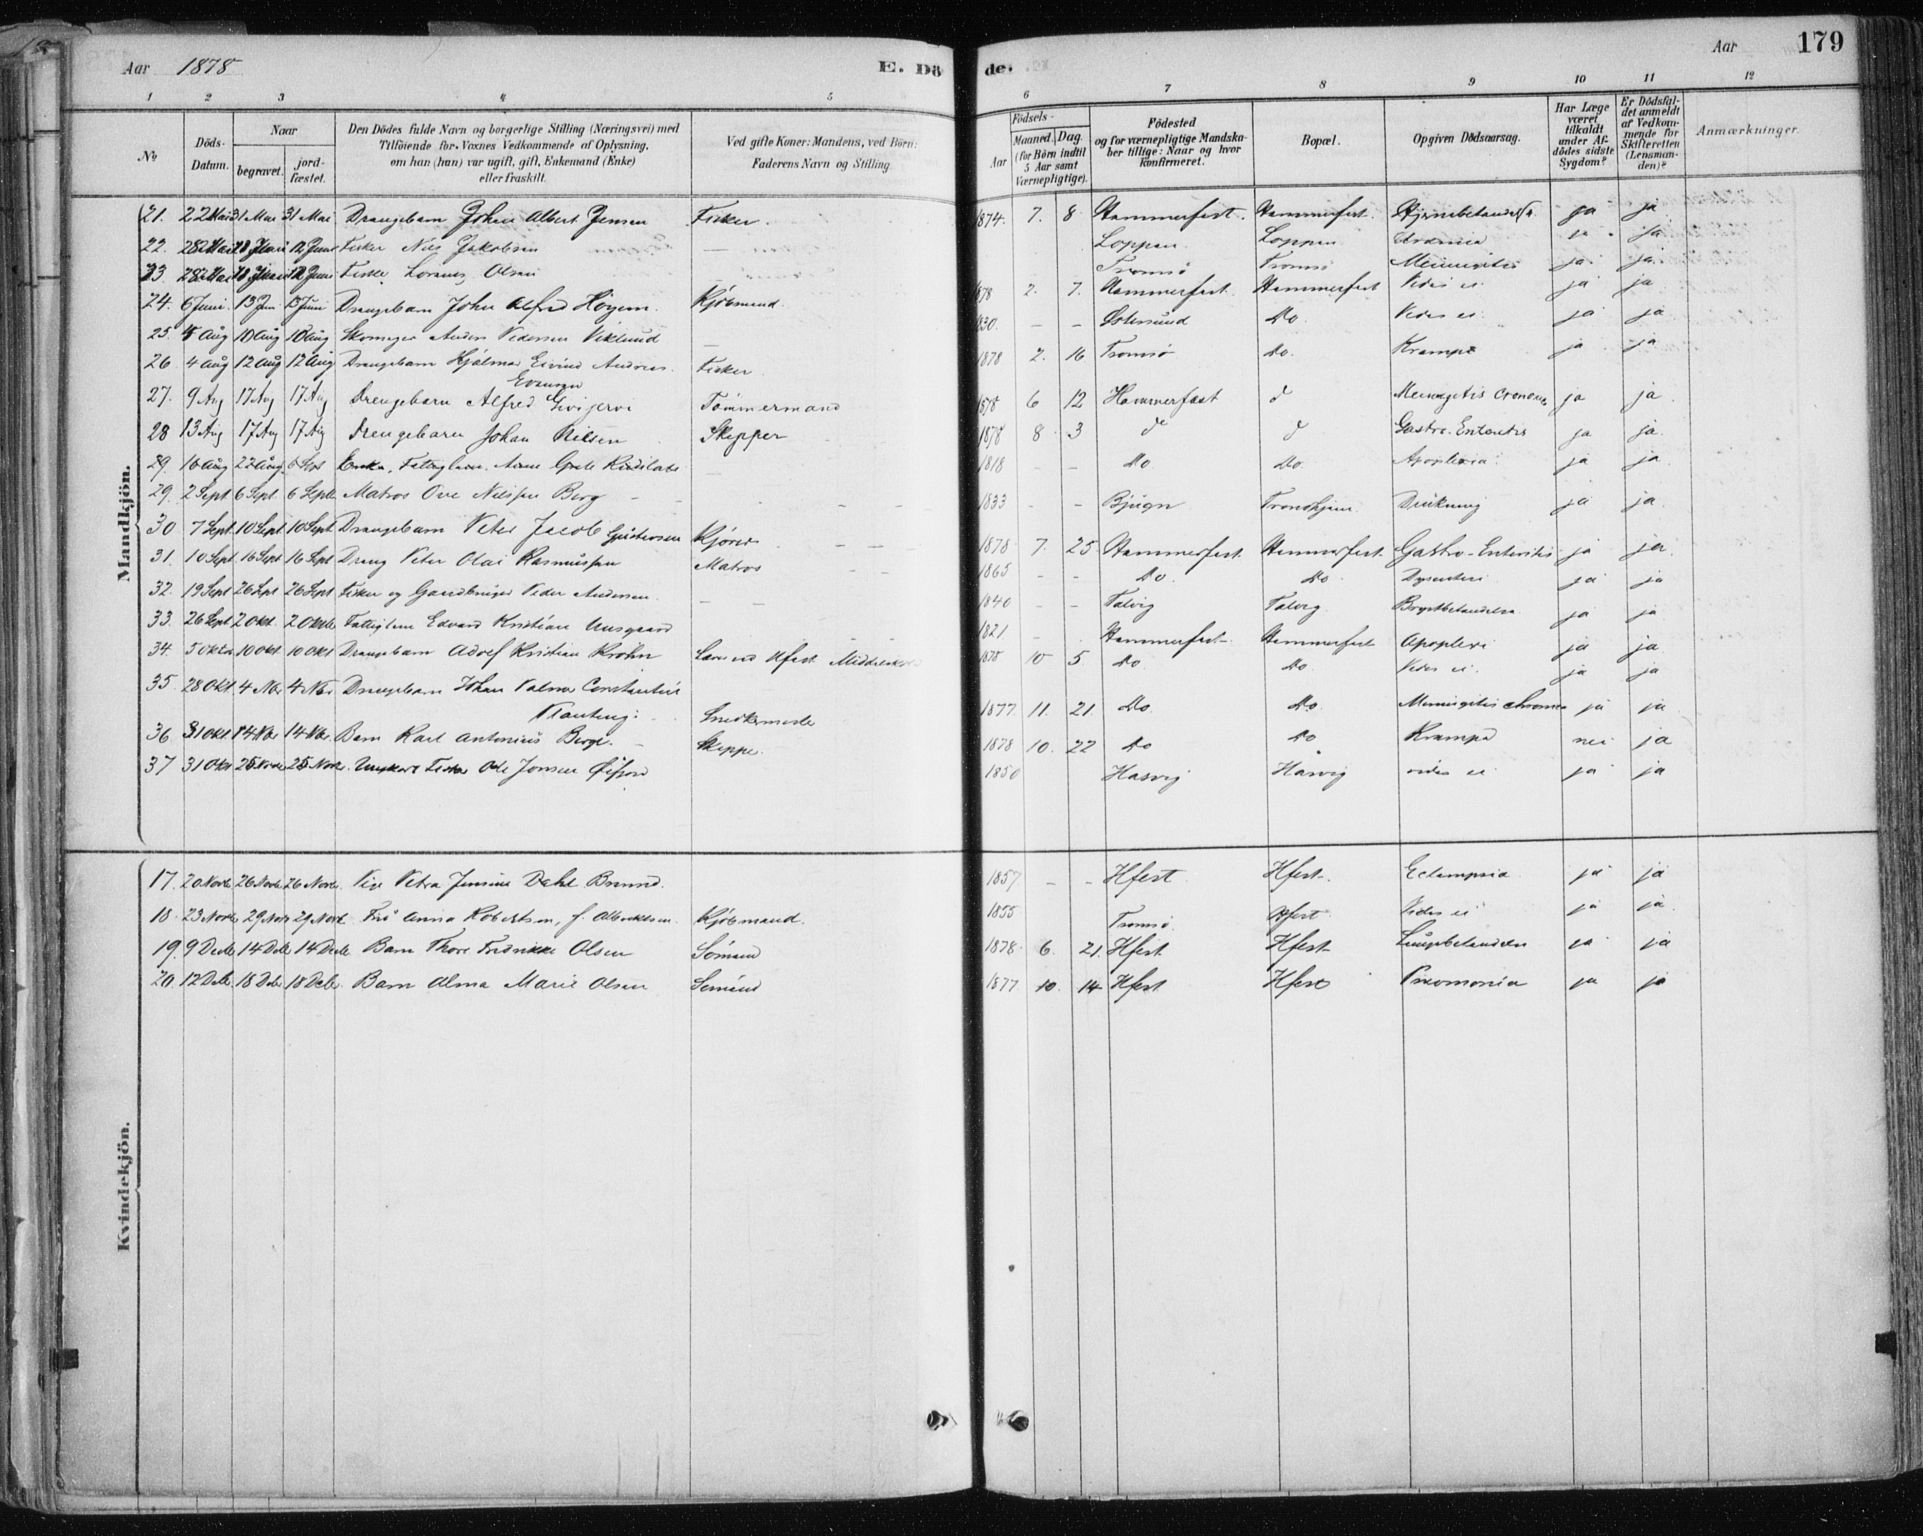 Aar 1878 E. Dö de. Aar 179
1 2 3 4 5 6 7 8 9 10 11 12
No
Döds-Datum.
Naar begravet. jordfæstet.
Den Dödes fulde Navn og borgerlige Stilling (Næringsvei) med Tilföiende for Voxnes Vedkommende af Oplysning, om han (hun) var ugift, gift, Enkemand (Enke) eller fraskilt.
Ved gifte Koner: Mandens, ved Börn: Faderens Navn og Stilling.
Födsels- Aar Maaned. Dag. (for Börn indtil 5 Aar samt Værnepligtige).
Födested og for værnepligtige Mandskaber tillige: Naar og hvor konfirmeret.
Bopæl.
Opgiven Dödsaarsag.
Har Læge været tilkaldt under Afdödes sidste Sygdom?
Er Dödsfaldet anmeldt af Vedkommende for Skifteretten (Lensmanden)?
Anmærkninger.
Mandkjön.
21. 22 Mai 31 Mai 31 Mai Drengebarn Johan Albert Jensen Fisker. 1874. 7. 8 Hammerfest. Hammerfest. ja ja
22. 28 Mai 12 Juni Fisker Nils Jakobsen Loppen Loppen ja ja
23 28 Mai 12 Juni Fisker Olsen Tromsö Tromsö ja ja
24. 6 Juni 13 Jun 13 Juni Drengebarn John Alfred Kjöbmand. 1878 2. 7. Hammerfest Hammerfest Vides ei ja ja
25. 5 Aug 10 Aug 10 Aug Skomager Anders Pedersen Viklund 1830. - - Östersund Do. Vides ei ja ja
26 4 Aug 12 Aug 12 Aug Drengebarn Hjalmar Eivind Andreas Evensen Fisker. 1878 2. 16 Tromsö Do. Krampe ja ja
27. 9 Aug 17 Aug 17 Aug Drengebarn Alfred Tömmermand 1878 6 12 Hammerfest d ja ja
28 13 Aug 17 Aug 17 Aug Drengebarn Johan Nilsen Skipper 1878 8 3 do d Gastro-Enteritis ja ja
29. 16 Aug 22 Aug 6 Sept 1818 - - Do Do. Apoplexia ja ja
29. 2 Sept 6 Sept 6 Septr Matros Ove Nilssen Berg - - 1833 - - Bjugn Trondhjem Drukning ja ja
30 7 Sept 10 Sept 10 Sept Drengebarn Peter Jacob 1878 7. 25 Hammerfest. Hammerfest. Gastro-Enteritis ja ja
31. 10 Sept 16 Sept 16 Sept Dreng Peter Olai Rasmussen Matros 1865 - - Do. Do Dysenteri ja ja
32. 19 Sept 26 Sept 26 Sept Fisker og Gaardbruger Peder Andersen - - 1840 - - Talvig Talvig Brystbetændelse ja ja
33. 26 Sept 2 Okt. 2 Oktbr Fattiglem Edvard Kristian 1821 - Hammerfest Hammerfest Apoplexi ja ja
34. 5 Oktbr 10 Okt 10 Okt Drengebarn Adolf Kristian Krohn 1878 10 5 Do Do. Vides ei ja ja
35. 28 Okt 4 Nbr 4 Nbr Drengebarn Johan 1877. 11. 21. Do. Do. ja ja
36. 31 Okt 14 Nbr 14 Nbr. Barn Karl Antonius Berg. Skipper. 1878 10. 22 Do Do Krampe nei ja
37 31 Okt 25 Novbr 25 Novbr. Ungkarl Fisker Ole Jonsen 1850 Hasvig Hasvig vides ei ja ja
Kvindekjön.
17. 20 Novbr 26 Novbr 26 Novbr. Pige Petra Jensine Dahl 1857. - - Hfest. Hfest. Eclampsia ja ja
18. 23 Novbr 29 Novbr 29 Novbr. Fru Anna Robertsen, f. Kjöbmand. 1855 Tromsö. Hfest. Vides ei ja ja.
19. 9 Decbr 14 Dcbr 14 Decbr Barn Thora Fredrikke Olsen Sömand 1878. 6. 21. Hfest Hfest Lungebetændelse ja ja
20. 12 Dcbr 18 Dcbr 18 Dcbr. Barn Alma Marie Olsen Sömand 1877 10. 14 Hfest Hfest Pneomonia ja ja